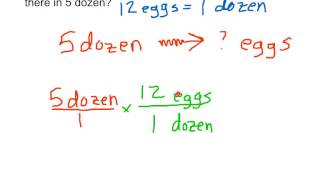 there in 5 dozen? 12 eggs = 1 dozen
5 dozen → ? eggs
5 dozen × 12 eggs
1 1 dozen